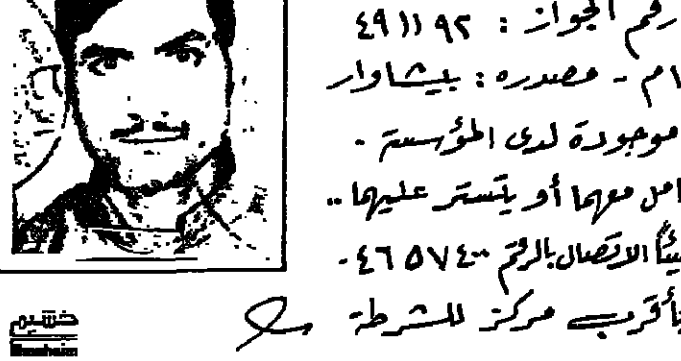 رقم الجواز : ٤٩١١٩٢
ام - مصدره : بيشاوار
موجودة لدى المؤسسة -
امل معهما أو يتستر عليهما ..
الاتصال بالرقم ٤٦٥٧٤٠٠ -
بأقرب مركز للشرطة
خشيم